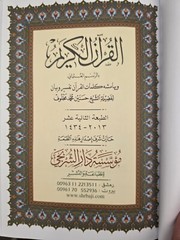 القرآن الكريم
بالرسم العثماني
وبهامشه كلمات القرآن تفسير وبيان
لفضيلة الشيخ حسنين محمد مخلوف
الطبعة الثانية عشر
٢٠١٣ - ١٤٣٤
مؤسسة دار الشربجي
دمشق
00963 11 2213511
بيروت
00961 70
www.shrbaji.com